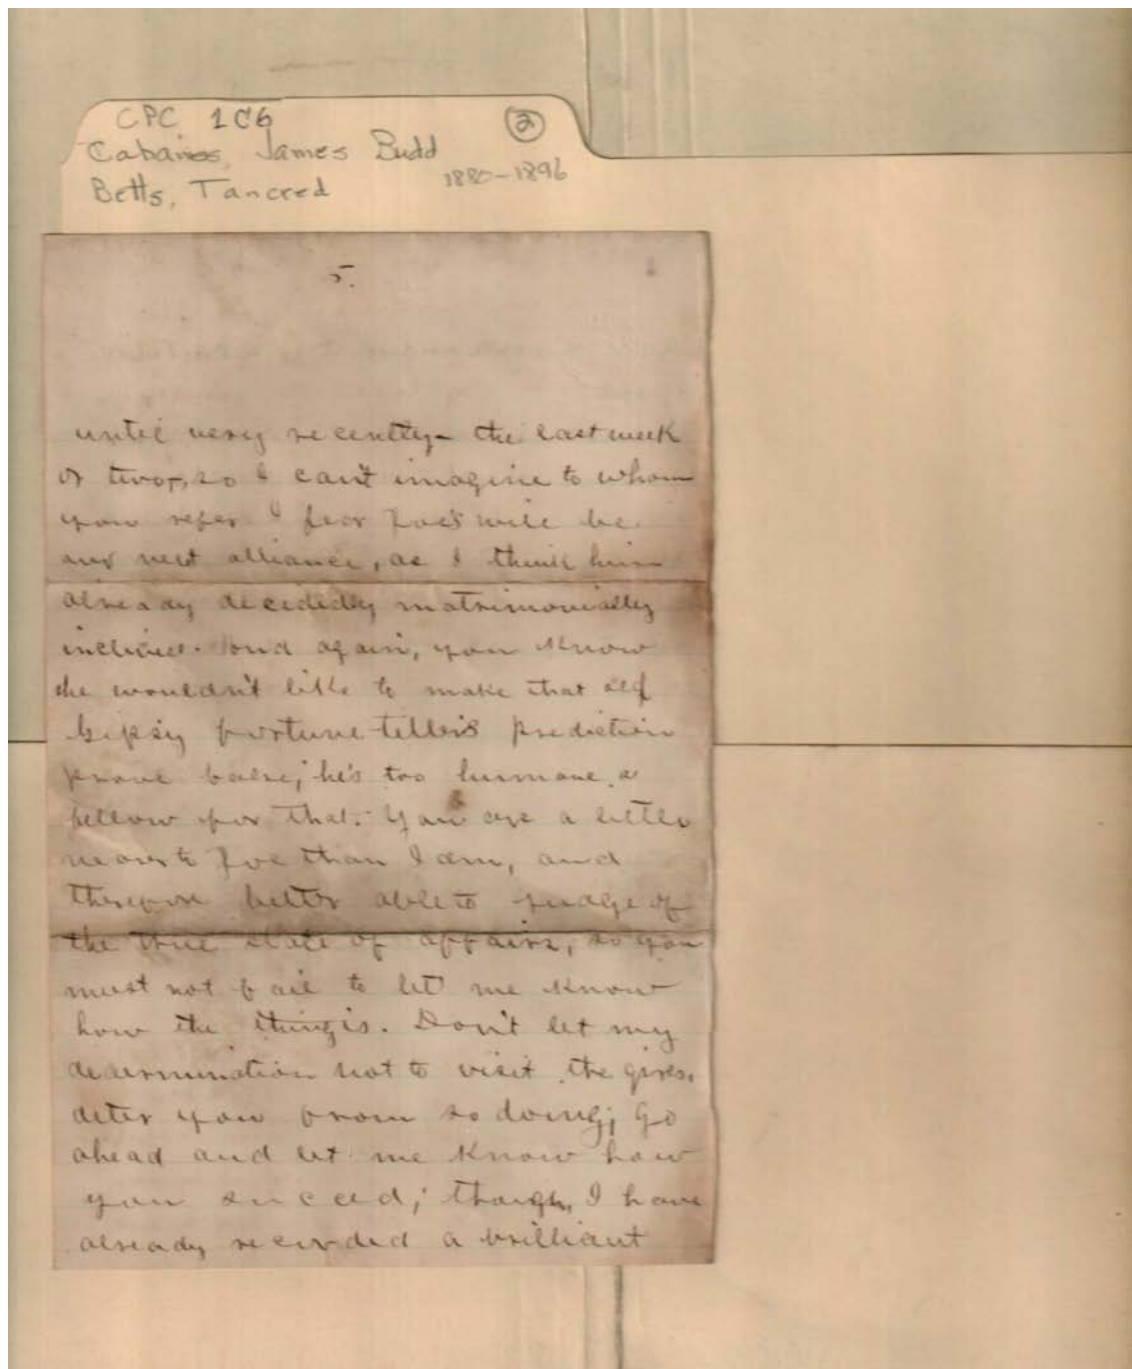 CPC 1C6
2
Cabaniss, James Budd
1880-1896
Betts, Tancred
5.
until very recently - the last week
or two, so I can't imagine to whom
you refer. I fear Joe's will be
our next alliance, as I think him
already decidedly matrimonially
inclined. And again, you know
he wouldn't like to make that old
Gipsy fortune-teller's prediction
prove false; he's too humane a
fellow for that. You are a little
nearer to Joe than I am, and
therefore better able to judge of
the true state of affairs, so you
must not fail to let me know
how the thing is. Don't let my
determination not to visit the girls,
deter you from so doing; go
ahead and let me know how
you succeed; though, I have
already recorded a brilliant